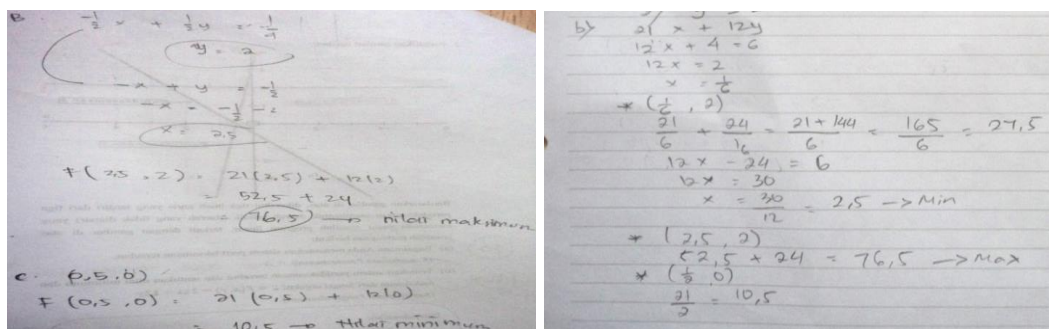 B
-1/2 x + 1/2 y = -1/4
y = 2
-x + y = -1/2
-x = -1/2 - 2
x = 2,5
F(2,5 , 2) = 21(2,5) + 12(2)
= 52,5 + 24
(16,5) → nilai maksimum
c. (0,5,0)
F (0,5 ,0) = 21 (0,5) + 12(0)
= 10,5 → Nilai minimum
b) 21 x + 12y
12 x + 4 = 6
12 x = 2
x = 1/6
* (1/6 , 2)
21/6 + 24/16 = 21 + 144/6 = 165/6 = 27,5
12 x - 24 = 6
12 x = 30
x = 30/12 = 2,5 → Min
* (2,5 , 2)
52,5 + 24 = 76,5 → Max
* (1/2 , 0)
21/2 = 10,5